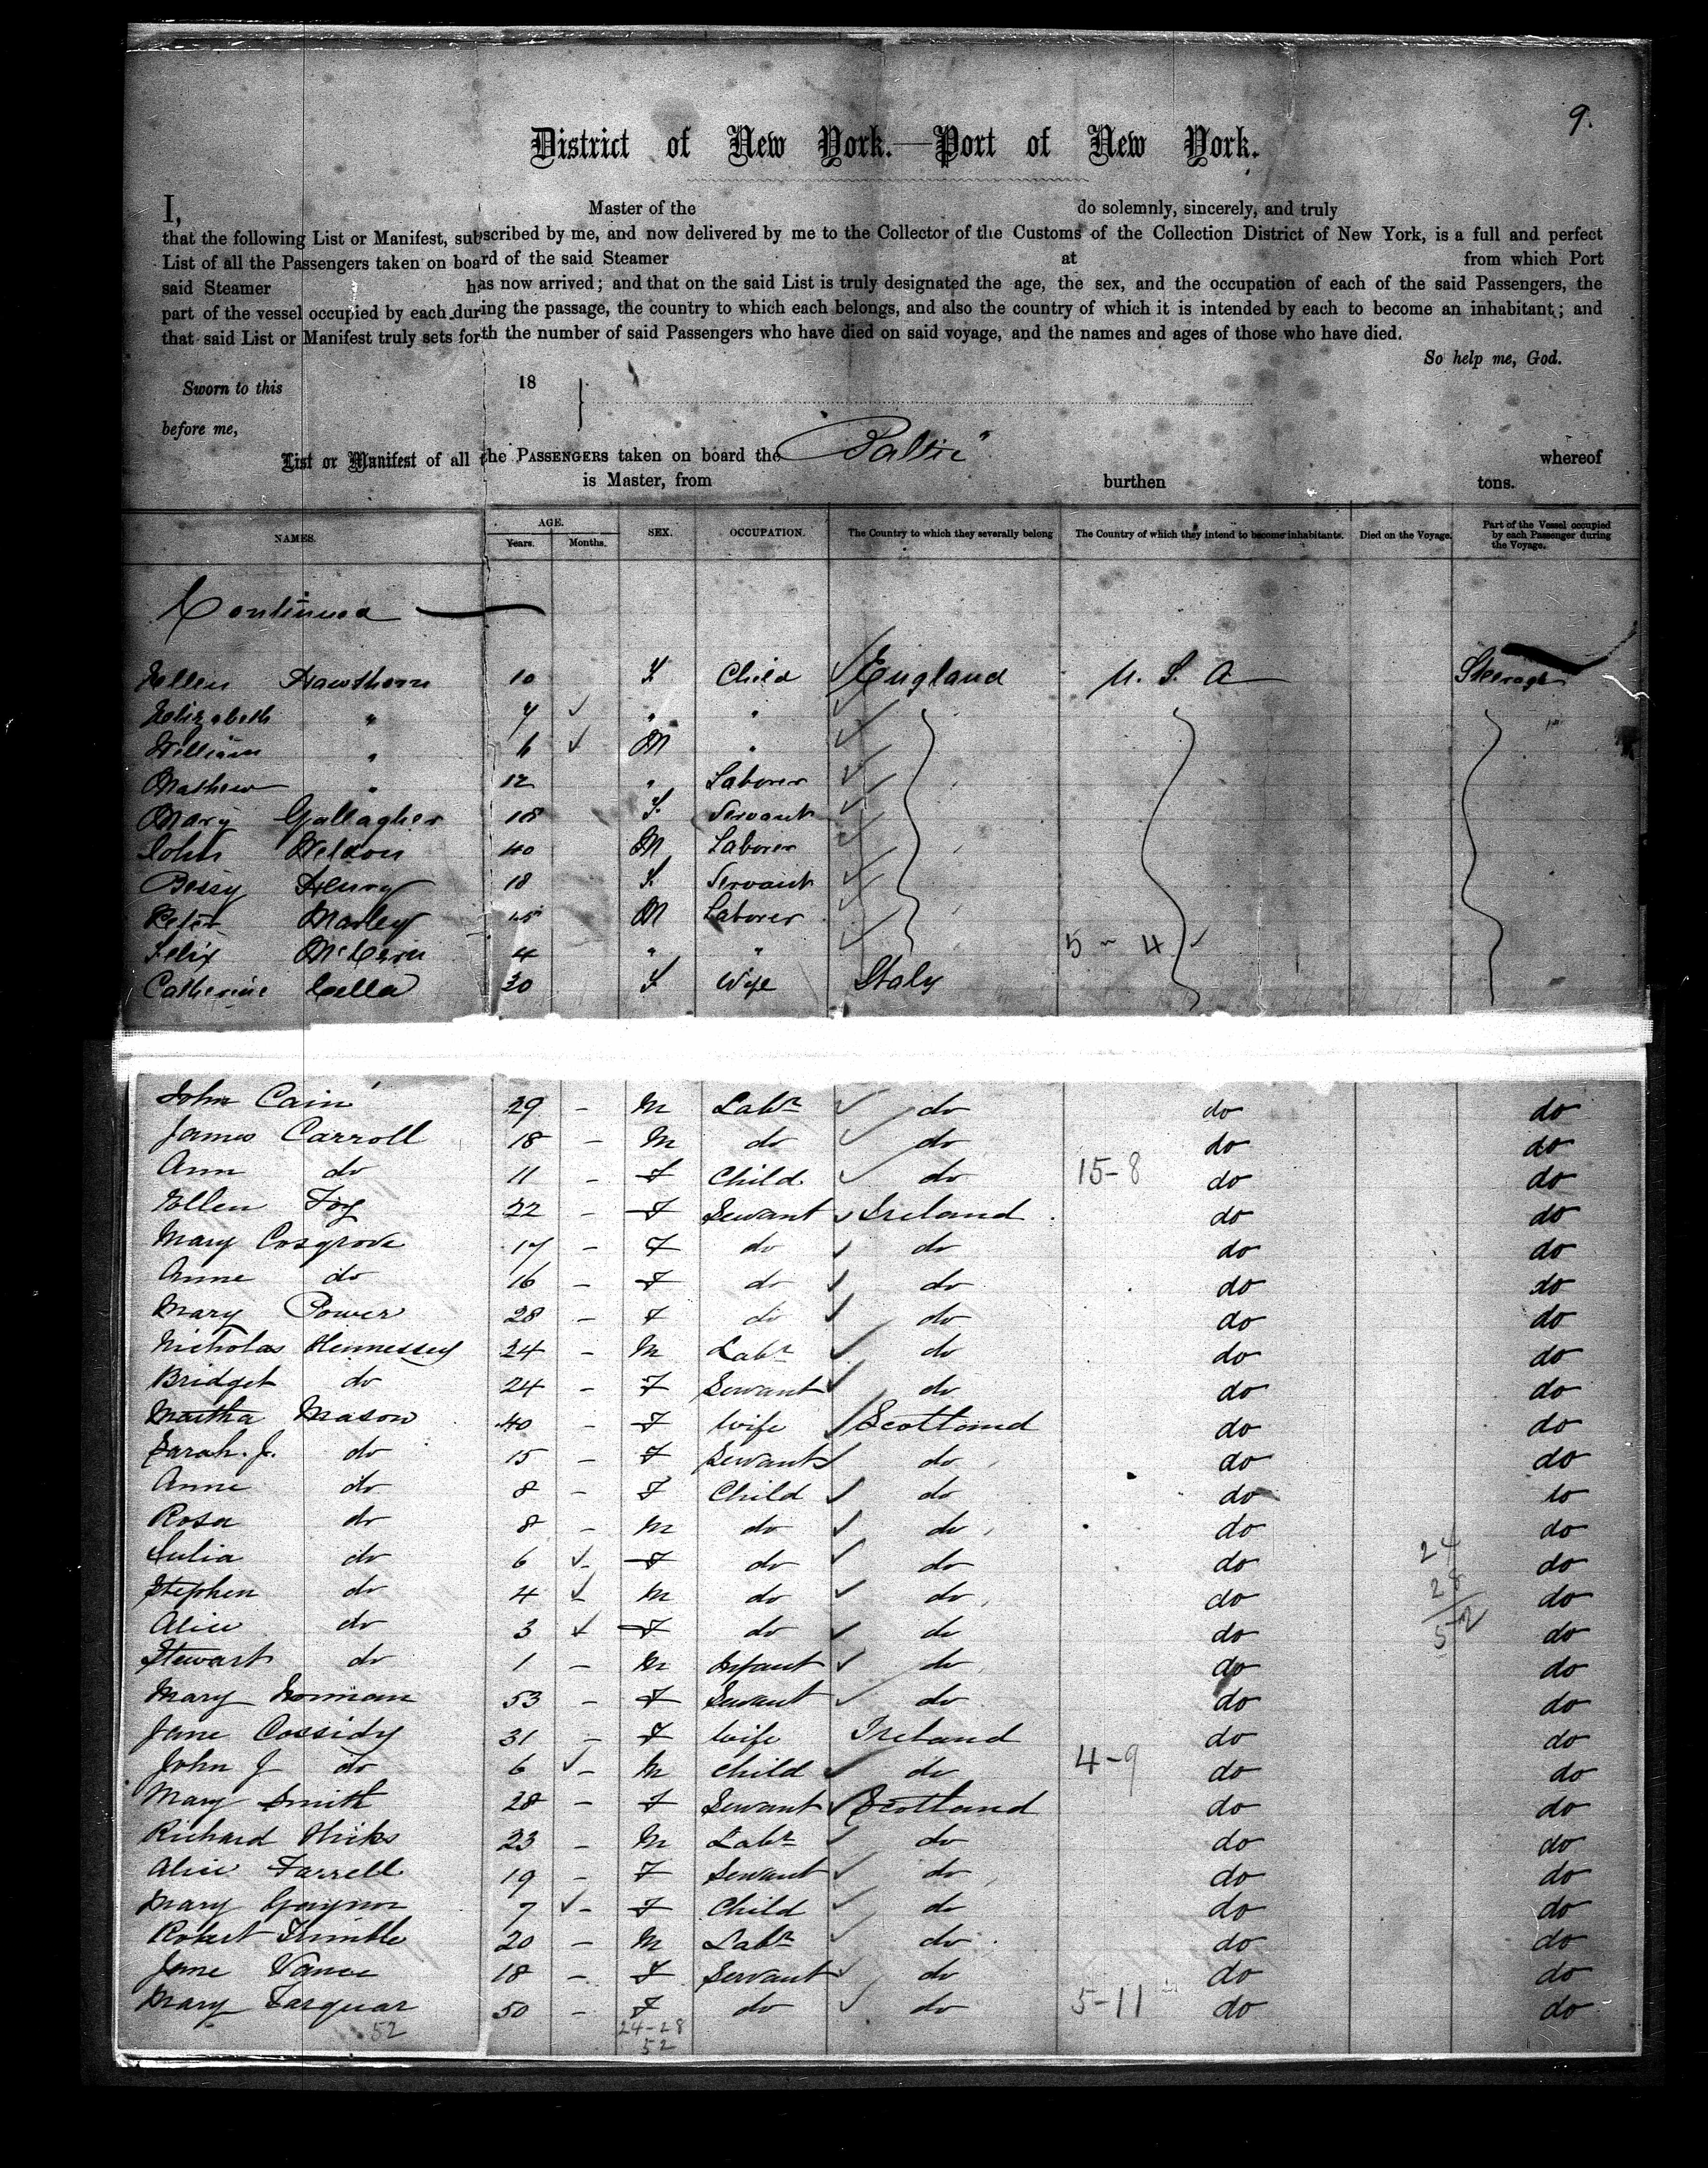 9.
District of New York.—Port of New York.
I, Master of the do solemnly, sincerely, and truly
that the following List or Manifest, subscribed by me, and now delivered by me to the Collector of the Customs of the Collection District of New York, is a full and perfect
List of all the Passengers taken on board of the said Steamer at from which Port
said Steamer has now arrived; and that on the said List is truly designated the age, the sex, and the occupation of each of the said Passengers, the
part of the vessel occupied by each during the passage, the country to which each belongs, and also the country of which it is intended by each to become an inhabitant; and
that said List or Manifest truly sets forth the number of said Passengers who have died on said voyage, and the names and ages of those who have died.
So help me, God.
Sworn to this 18
before me,
List or Manifest of all the PASSENGERS taken on board the "Baltic" whereof
is Master, from burthen tons.
NAMES. AGE. Years. Months. SEX. OCCUPATION. The Country to which they severally belong The Country of which they intend to become inhabitants. Died on the Voyage. Part of the Vessel occupied by each Passenger during the Voyage.
Continued
Ellen Hawthorn 10 F. Child England U. S. A Steerage
Elizabeth " 7 " "
William " 6 M "
Mathew " 12 " Laborer
Mary Gallagher 18 F. Servant
John Weldon 40 M Laborer
Bessy Henry 18 F. Servant
Peter Marley 45 M Laborer
Felix 4 " " 5 - 4
Catherine Cella 30 F Wife Italy
John Cain 29 - M Labr do do do
James Carroll 18 - M do do do do
Ann do 11 - F Child do 15-8 do do
Ellen Foy 22 - F Servant Ireland do do
Mary Cosgrove 17 - F do do do do
Anne do 16 - F do do do do
Mary Power 28 - F do do do do
Nicholas Hennessey 24 - M Labr do do do
Bridget do 24 - F Servant do do do
Martha Mason 40 - F Wife Scotland do do
Sarah. J. do 15 - F Servant do do do
Anne do 8 - F Child do do do
Rosa do 8 - M do do do do
Julia do 6 - F do do do 24 do
Stephen do 4 - M do do do 28 do
Alice do 3 - F do do do 52 do
Stewart do 1 - M Infant do do do
Mary Norman 53 - F Servant do do do
Jane Cassidy 31 - F Wife Ireland do do
John J do 6 - M Child do 4-9 do do
Mary Smith 28 - F Servant Scotland do do
Richard Hicks 23 - M Labr do do do
Alice Farrell 19 - F Servant do do do
Mary Gaynor 7 - F Child do do do
Robert Trimble 20 - M Labr do do do
Jane Vance 18 - F Servant do do do
Mary Farquar 50 - F do do 5-11 do do
52 24-28
52